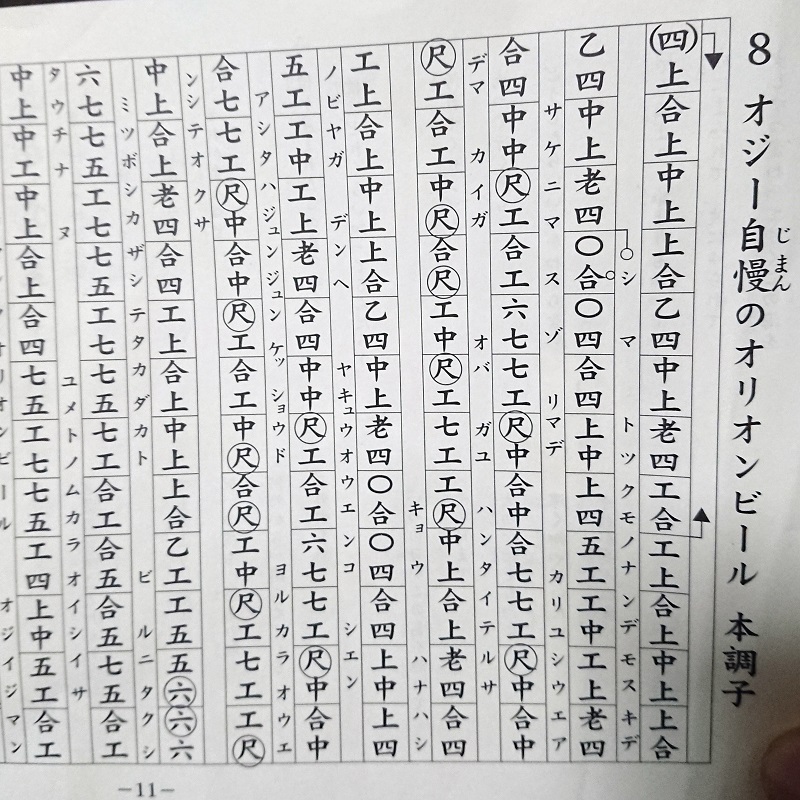 8 オジー自慢のオリオンビール 本調子
じまん
(四)上合上中上上合乙四中上老四工合工上合上中上上合
シマトツクモノナンデモスキデ
乙四中上老四〇合〇四合四上中上四五工工中工上老四
サケニマスゾリマデカリユシウエア
合四中中尺工合工六七七工尺中合中合七七工尺中合中
デマカイガオバガユハンタイテルサ
尺工合工中尺合尺工中尺工七工工尺中上合上老四合四
キョウハナハシ
工上合上中上上合乙四中上老四〇合〇四合四上中上四
ノビヤガデンヘヤキュウオウエンコシエン
五工工中工上老四合四中中尺工合工六七七工尺中合中
アシタハジュンジュンケッショウドヨルカラオウエ
合七七工尺中合中尺工合工中尺合尺工中尺工七工工尺
ンシテオクサ
中上合上老四合四工上合上中上上合乙工工五五六六六
ミツボシカザシテタカダカトビルニタクシ
六七七五工七七五工七七五七工合工合五合五七五合工
タウチナヌユメトノムカラオイシイサ
中上中工中上合上合四七五工七七五工四上中五工合工
オジイジマン
-11-